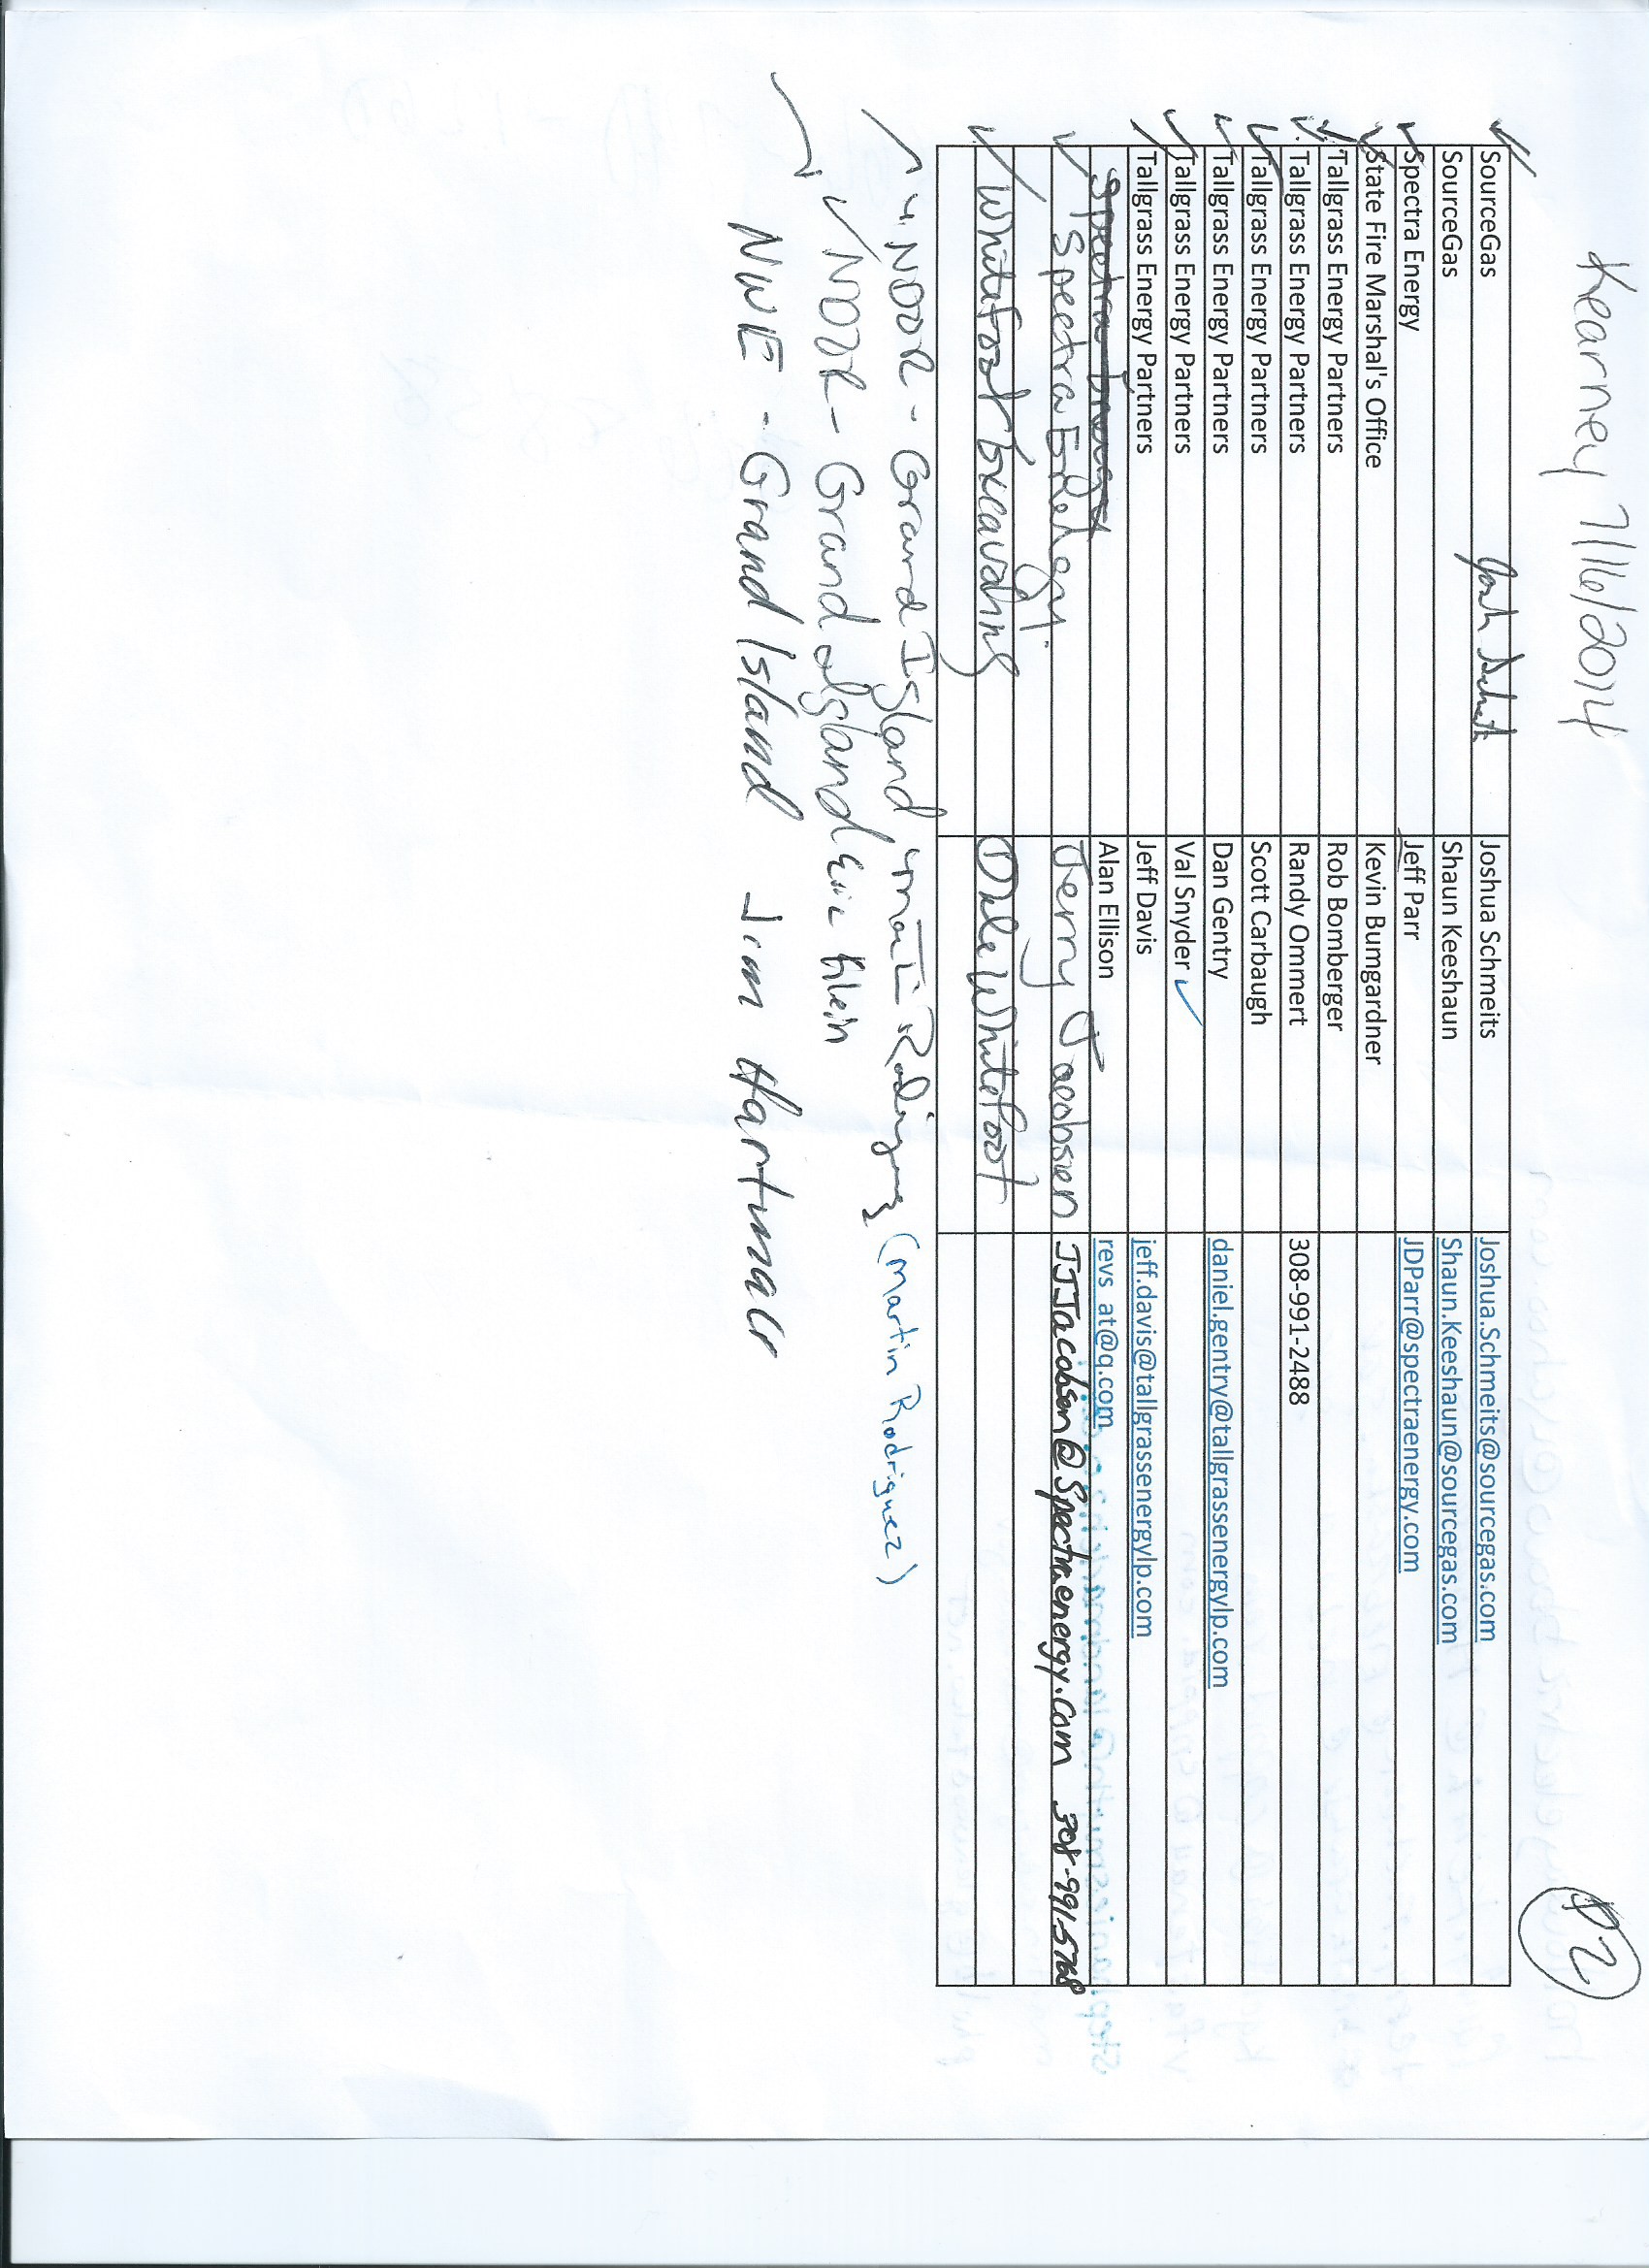 Kearney 7/16/2014
P2
SourceGas Joshua Schmeits Joshua.Schmeits@sourcegas.com
SourceGas Shaun Keeshaun Shaun.Keeshaun@sourcegas.com
Spectra Energy Jeff Parr JDParr@spectraenergy.com
State Fire Marshal's Office Kevin Bumgardner
Tallgrass Energy Partners Rob Bomberger
Tallgrass Energy Partners Randy Ommert 308-991-2488
Tallgrass Energy Partners Scott Carbaugh
Tallgrass Energy Partners Dan Gentry daniel.gentry@tallgrassenergylp.com
Tallgrass Energy Partners Val Snyder
Tallgrass Energy Partners Jeff Davis jeff.davis@tallgrassenergylp.com
Spectra Energy Alan Ellison revs_at@q.com
Spectra Energy Jerry Jacobsen JJJacobsen@Spectraenergy.com 308-991-5768
Whitefoot Excavating Dale Whitefoot
" NDOR - Grand Island " Rodriguez (Martin Rodriguez)
NDOR - Grand Island Eric Klein
NWE - Grand Island Jim Hartman